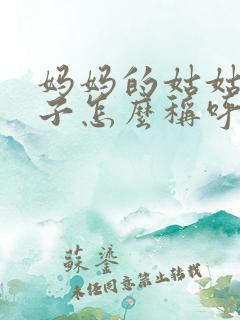 妈妈的姑姑
子怎麼稱呼
蘇鎏
未经同意禁止转载